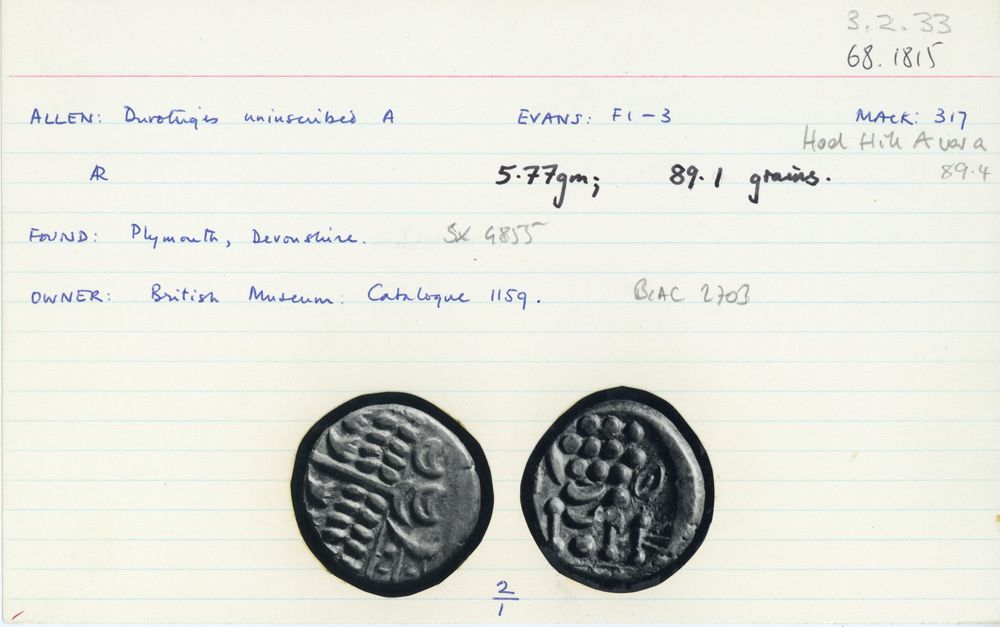 3.2.33
68.1815
ALLEN: Durotrigis uninscribed A EVANS: F1-3 MACK: 317
Hod Hill A var a
AR 5.77gm; 89.1 grains. 89.4
FOUND: Plymouth, Devonshire. SX 4855
OWNER: British Museum: Catalogue 1159. BMC 2703
2
1